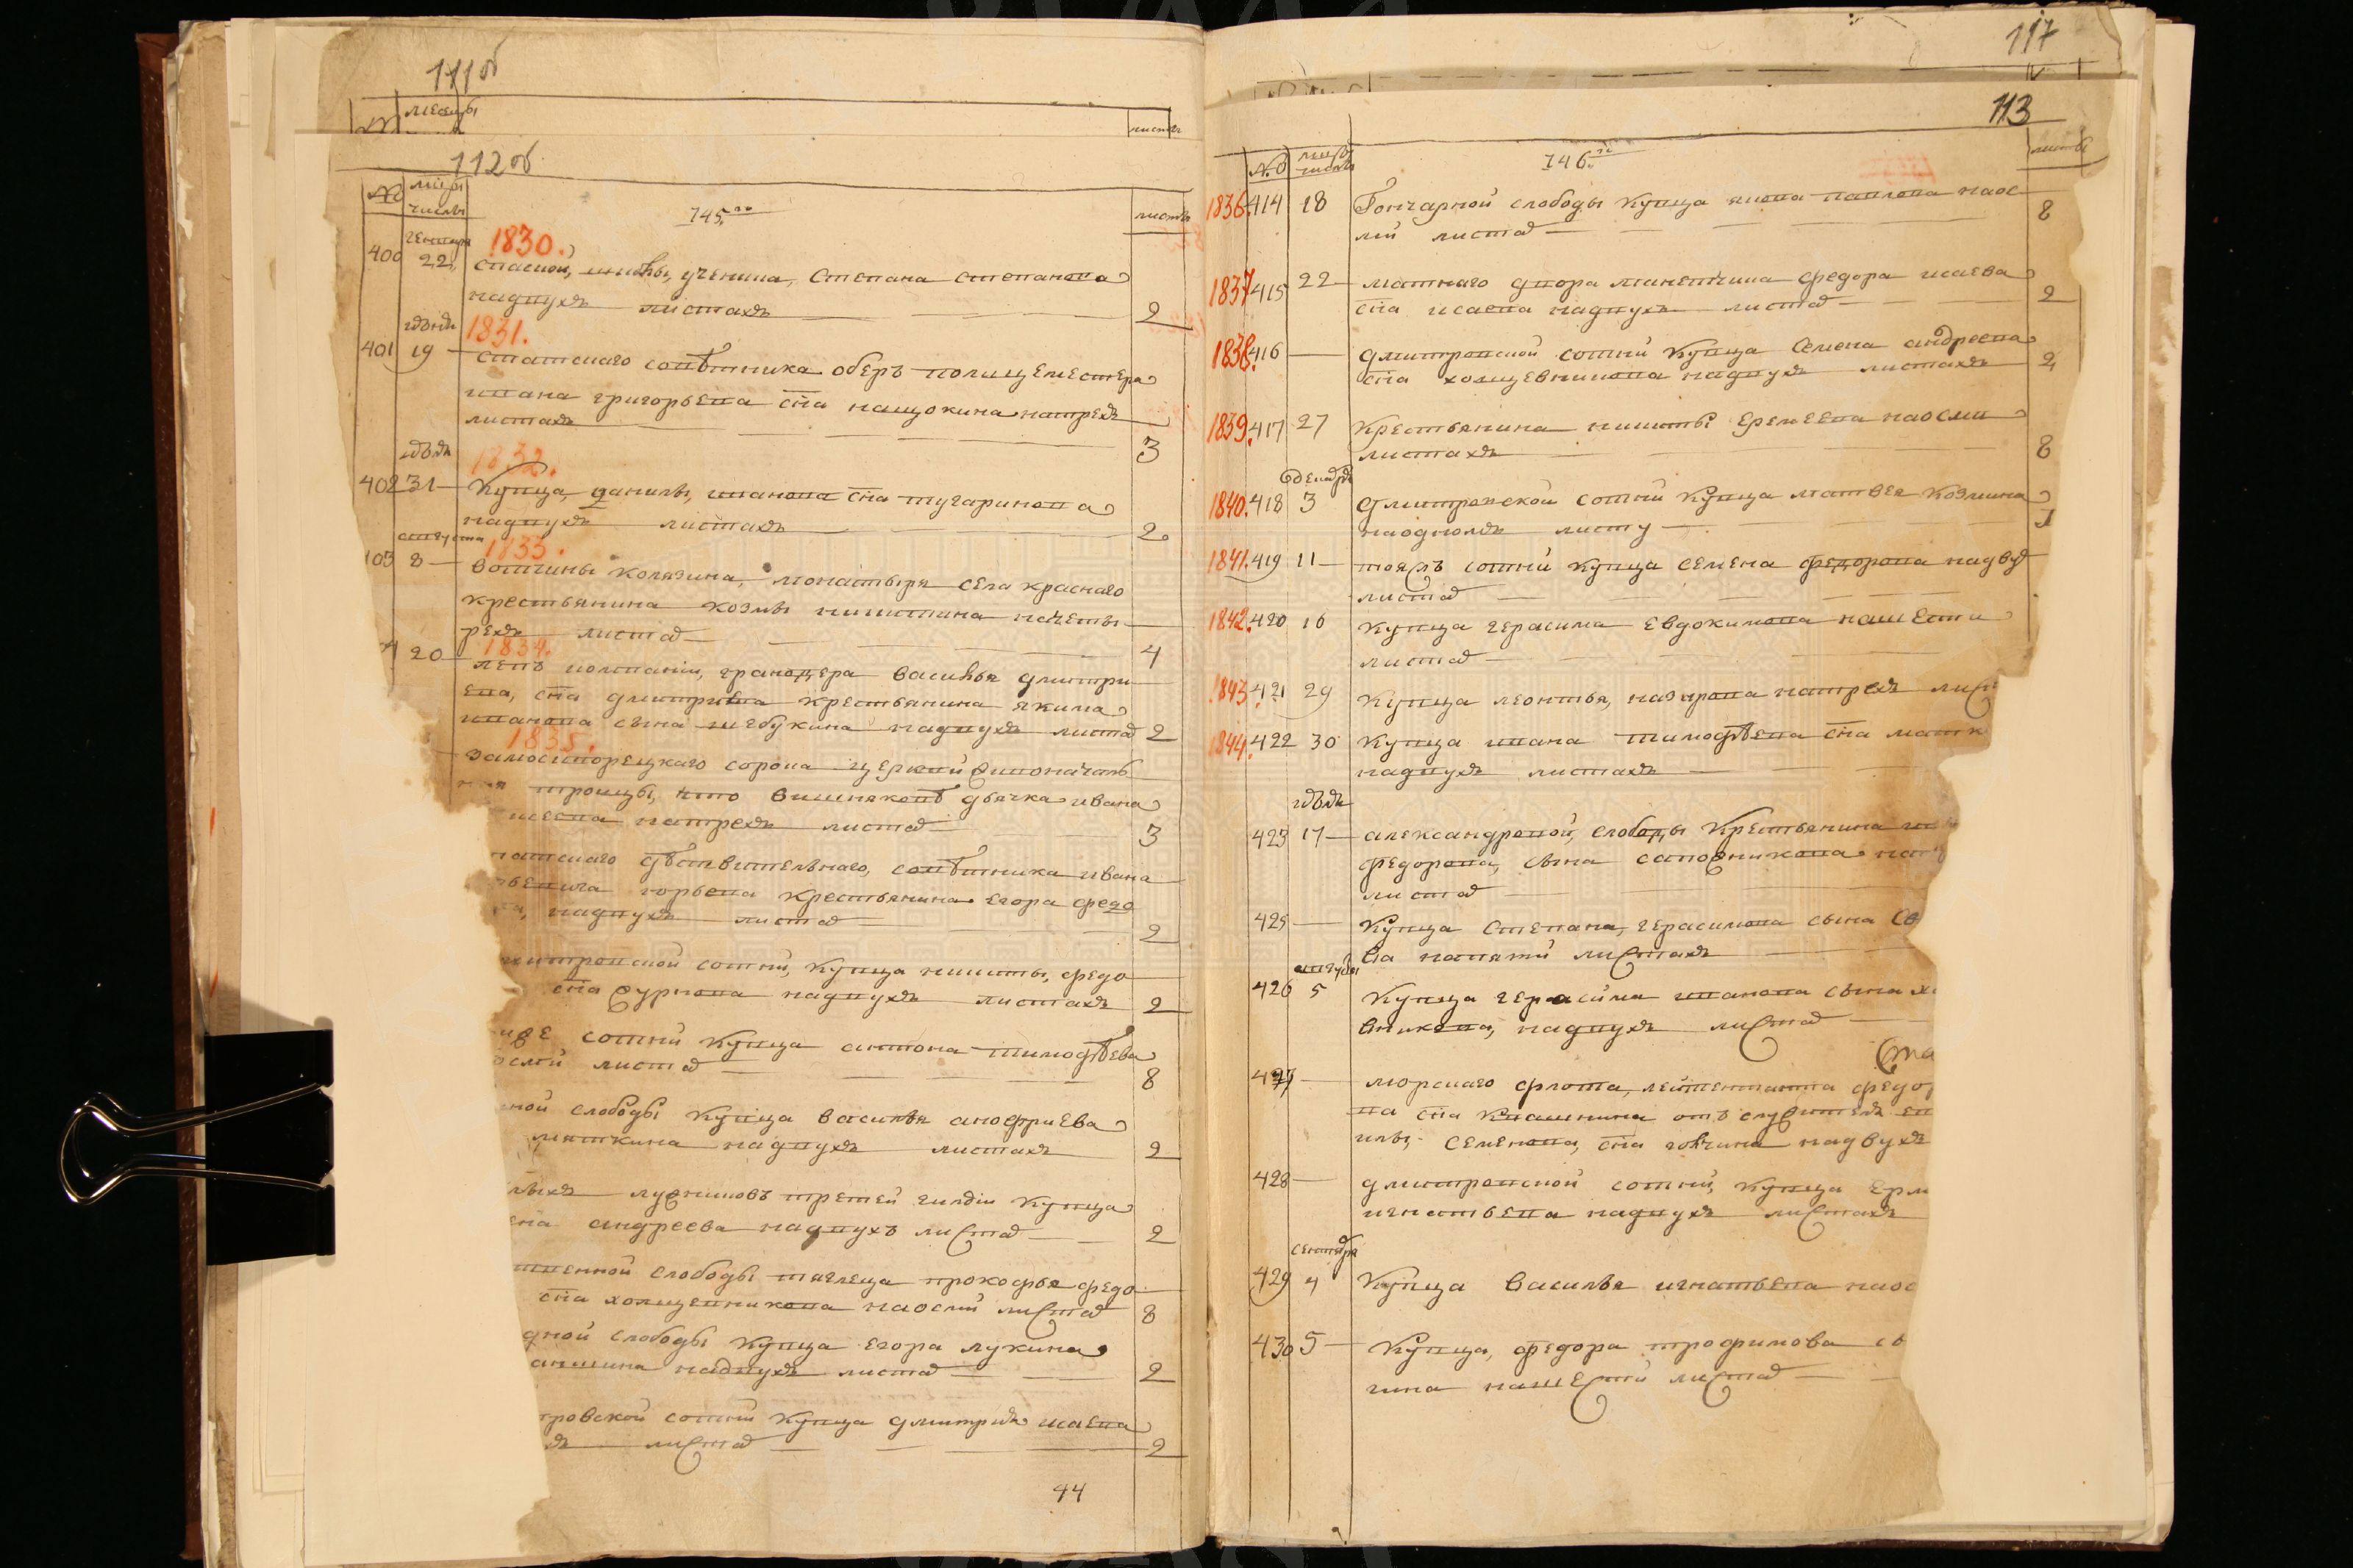 111 об
№ месяцы
листы
112 об
№ мцы числы
745 го
листы
генваря
1830.
400 22 спаской, школы, ученика, Степана степанова
надвухъ листахъ 2
июня
1831.
401 19 статскаго советника оберъ полицеместера
ивана григорьева сна нащокина натрехъ
листахъ 3
июля
1832.
402 31 купца, данилы, иванова сна тугаринова
надвухъ листахъ 2
августа
1833.
403 8 вотчины колязина, монастыря села краснаго
крестьянина козмы никитина начеты
рехъ листах 4
1834.
4 20 лейб компании, гранодера василья дмитри
ева, сна дмитриева крестьянина якима
иванова сына шебукина надвухъ листах 2
1835.
замоскворецкаго сорока церкви живоначаль
троицы, что вишнякове дьячка ивана
натрехъ листах 3
татскаго действителнаго, советника ивана
крестьянина егора федо
надвухъ листах 2
митровской сотни, купца никиты, федо
сна журкова надвухъ листахъ 2
сотни купца антона тимофеева
осми листах 8
ной слободы купца василья анофриева
мяткина надвухъ листахъ 2
лужниковъ третей гилдии купца
сна андреева надвухъ листах 2
слободы тяглеца прокофья федо
сна холщевникова наосми листах 8
дной слободы купца егора лукина
аншина надвухъ листах 2
тровской сотни купца дмитрия исаева
хъ листах 2
44
117
113
№ мцы числы
746 го
листы
1836. 414 18 Гончарной слободы купца якова павлова наос
ми листах 8
1837 415 22 матнаго двора манетчика федора исаева
сна исаева надвухъ листах 2
1838. 416 дмитровской сотни купца семена андреева
сна холщевникова надвухъ листахъ 2
1839. 417 27 крестьянина никиты еремеева наосми
листахъ 8
декабря
1840. 418 3 дмитровской сотни купца матвея козмина
наодномъ листу 1
1841. 419 11 тояжъ сотни купца семена федорова надвух
листах
1842. 420 16 купца герасима евдокимова нашести
листах
1843. 421 29 купца леонтья, назарова натрехъ лис
1844. 422 30 купца ивана тимофеева сна
надвухъ листахъ
июля
423 17 александровой, слободы крестьянина
федорова, сына сапожникова
листах
425 купца степана, герасимова сына
ва напяти листахъ
августа
426 5 купца герасима иванова сына
вникова, надвухъ листах
427 морскаго флота, лейтенанта федо
ва сна квашнина отъ служителя
илы, семенова, сна надвухъ
428 дмитровской сотни, купца ерм
игнатьева надвухъ листахъ
сентября
429 4 купца василья игнатьева наос
430 5 купца, федора трофимова
гина нашести листах